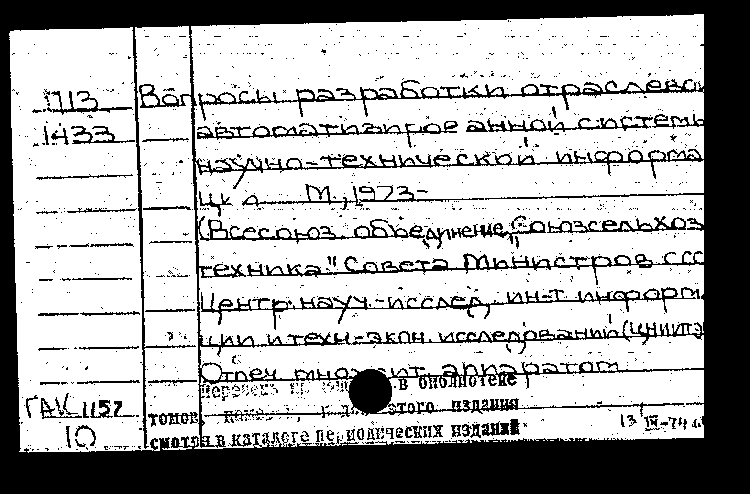 П13 Вопросы разработки отраслевой
1433 автоматизированной системы
научно-технической информа
ции М., 1973-
(Всесоюз. объединение "Союзсельхоз
техника" Совета Министров ССС
Центр. науч.-исслед. ин-т информ.
ции и техн-экон. исследований (ЦНИИТЭ
Отпеч. множит. аппаратом
Перечень в библиотеке
ГАК 1157 томов, этого издания
10 смотри в каталоге периодических изданий
13 IX-74